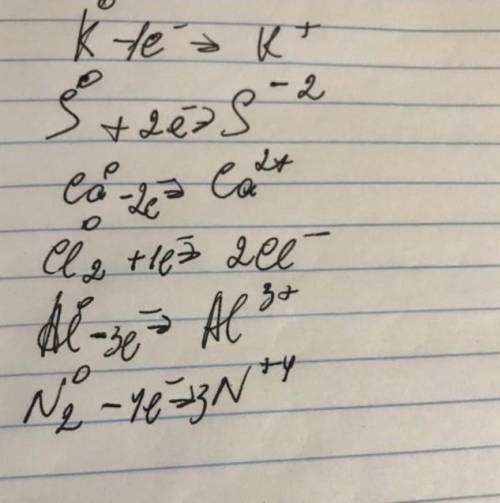 K⁰ -1e⁻ → K⁺
S⁰ + 2e⁻ → S⁻²
Ca⁰ -2e⁻ → Ca²⁺
Cl₂⁰ +1e⁻ → 2Cl⁻
Al⁰ -3e⁻ → Al³⁺
N₂⁰ -4e⁻ → 3N⁺⁴